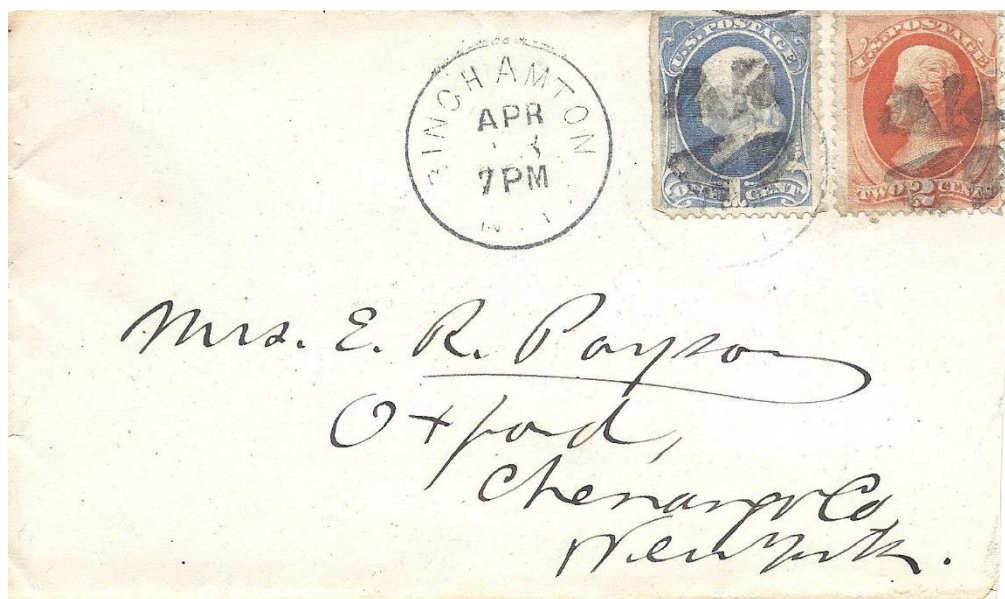 BINGHAMTON
APR
7 PM
N.Y.
U.S. POSTAGE
ONE 1 CENT
U.S. POSTAGE
TWO 2 CENTS
Mrs. E. R. Payson
Oxford,
Chenango Co
New York.